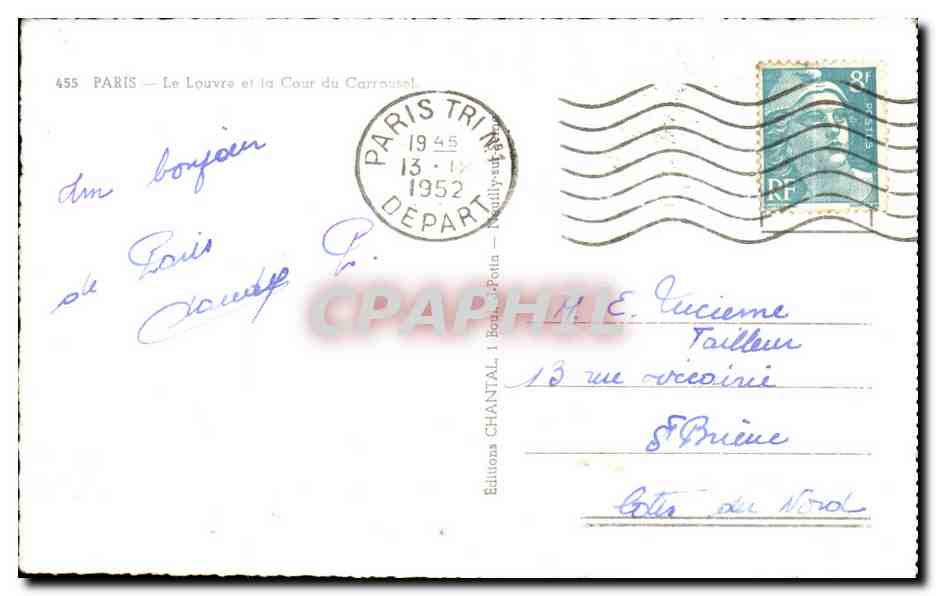 455 PARIS — Le Louvre et la Cour du Carrousel
Un bonjour
de Paris
P.
PARIS TRI N
19 45
13 · IX
1952
DÉPART
8F
POSTES
RF
Éditions CHANTAL, 1 Boul. -Potin — Neuilly-sur-
CPAPHIL
M. E. Lucienne
Tailleur
13 rue vicairie
St Brieuc
Cotes du Nord